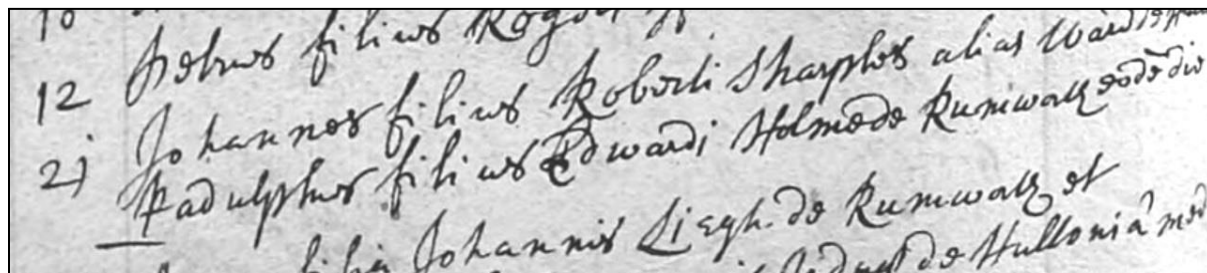 10
12 Petrus filius Roger
21 Johannes filius Roberti Sharples alias Ward de
Radulphus filius Edwardi Holme de Rumwall eodē die
filia Johannis Liegh de Rumwall et
de Hulloniâ med